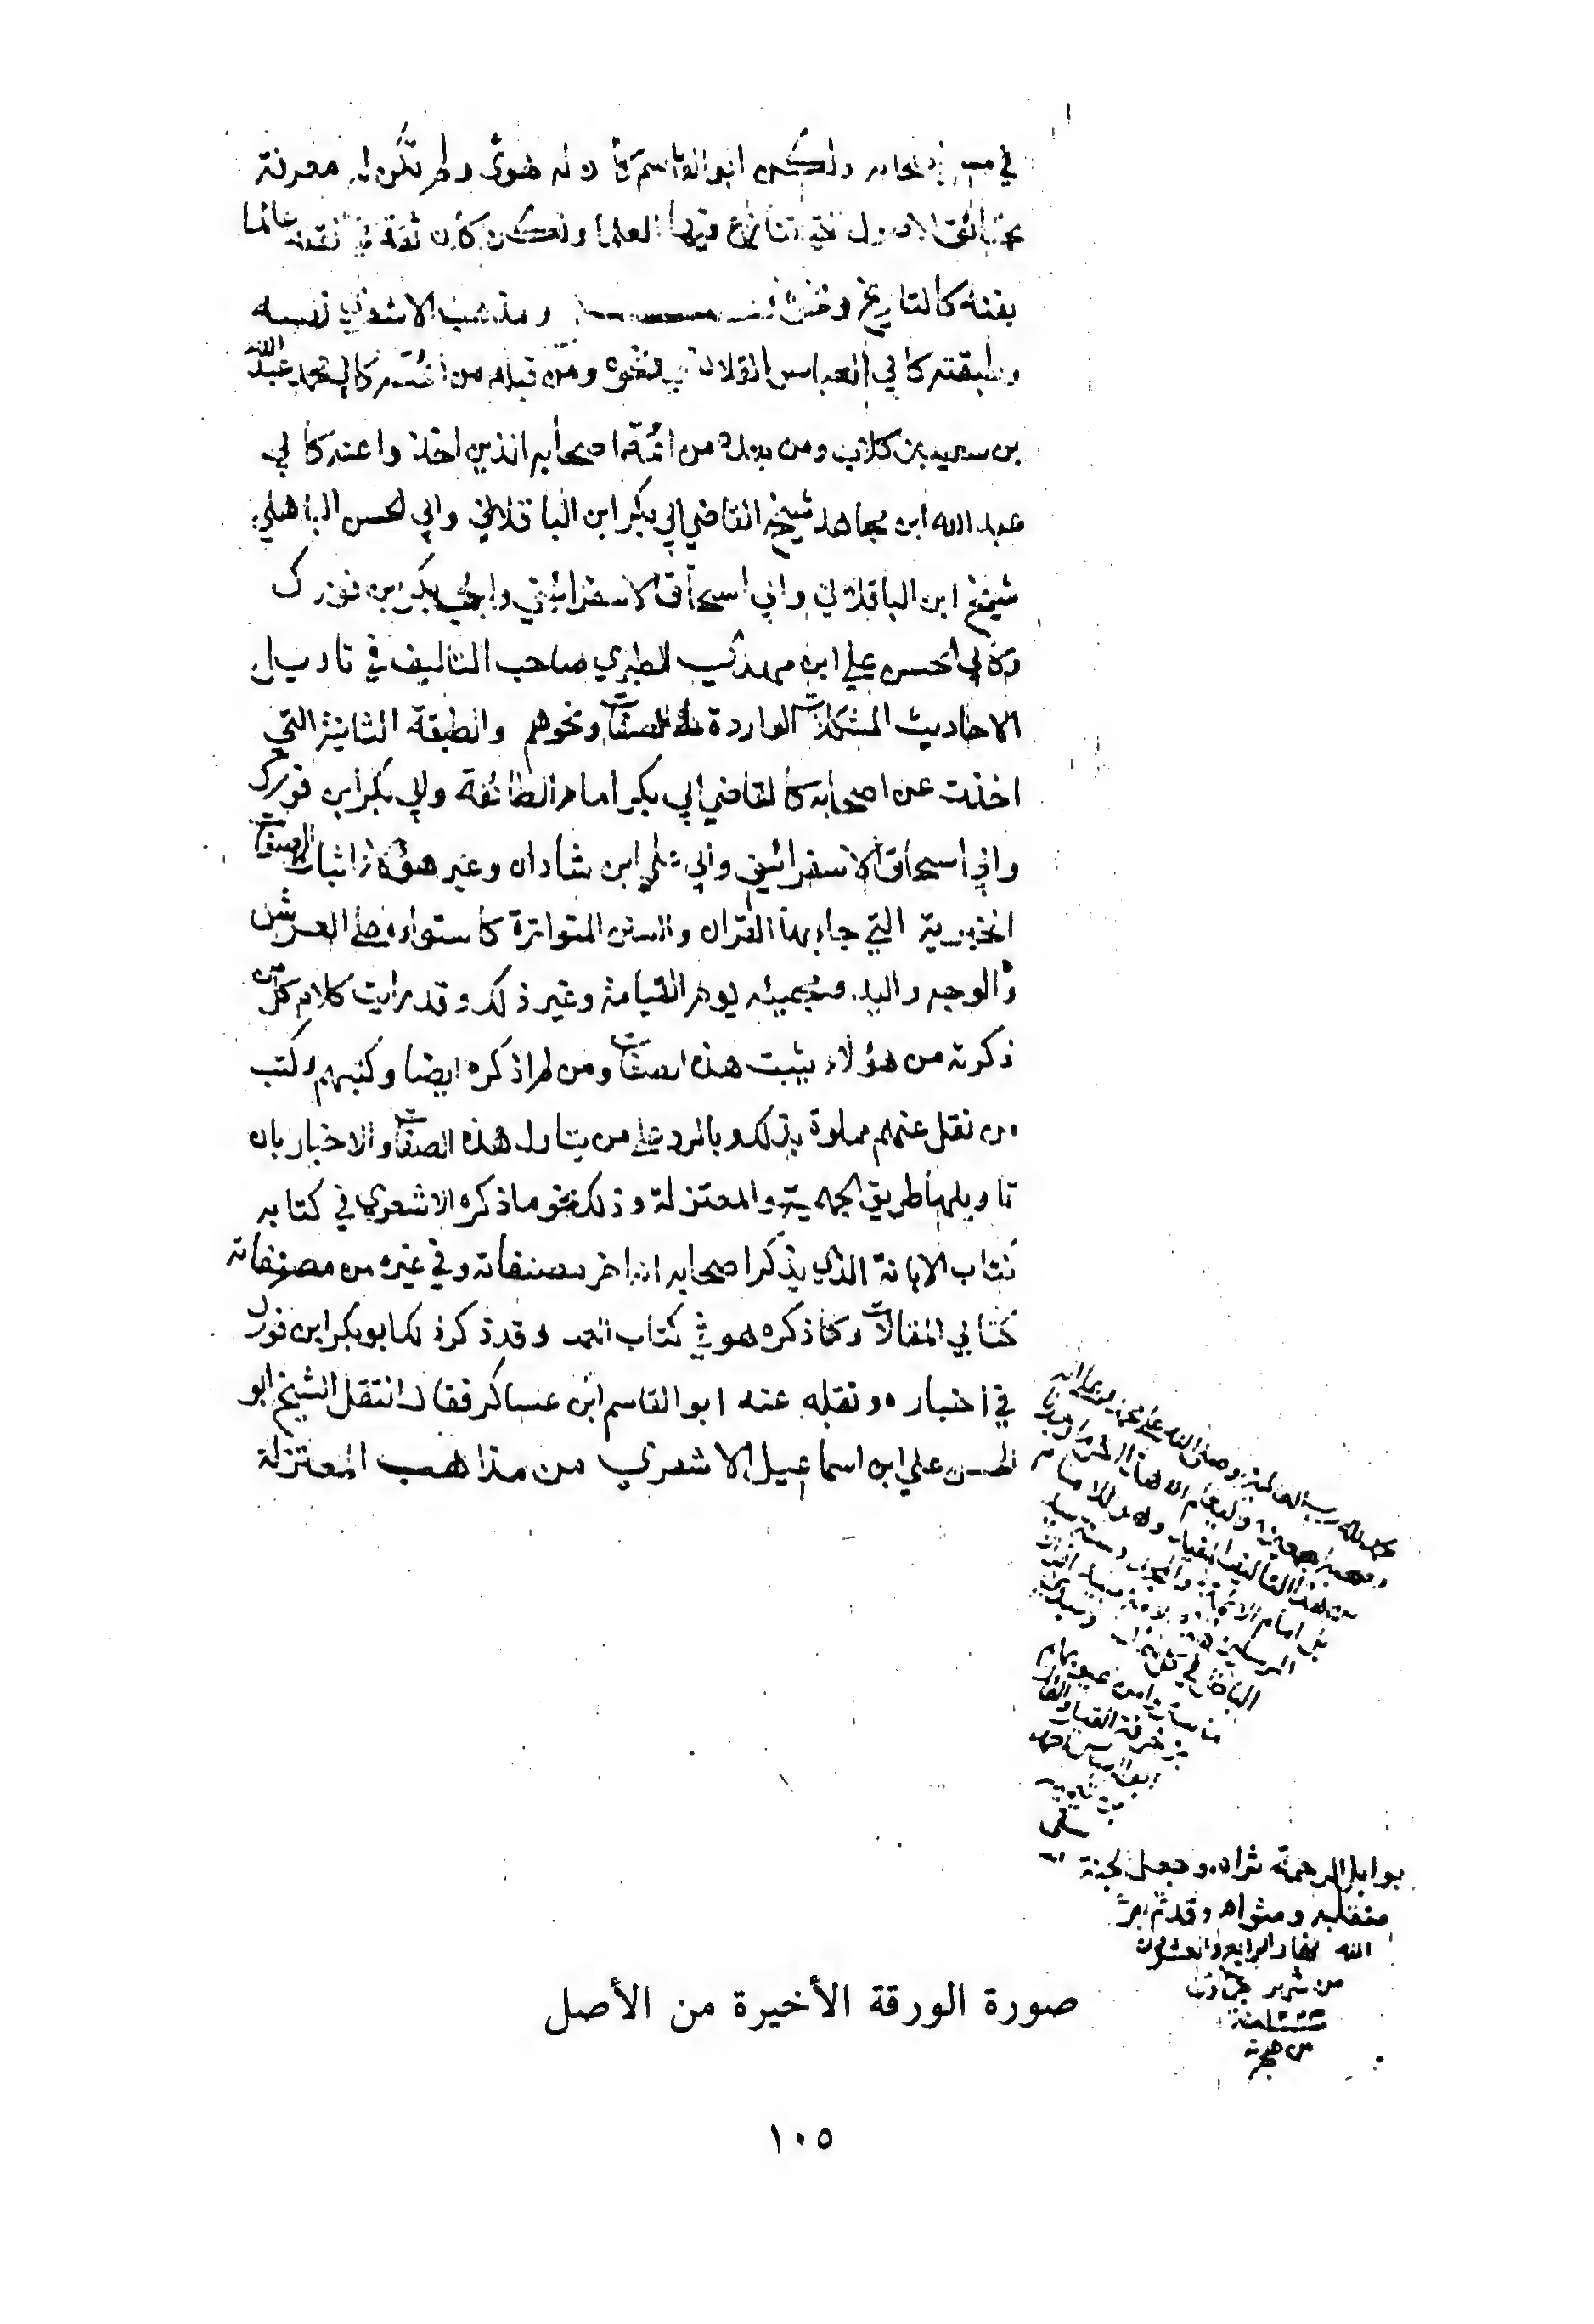 ولكن ابو القاسم كان له هوى ولم تكن له معرفة
بحقائق الاصول التي تنازع فيها العلما ولكن كان ثقة في نقله عالما
بفنه كالتاريخ ونحوه ومذهب الاشعري نفسه
وطبقته كابي العباس القلانسي ونحوه ومن قبله من ائمتهم كابي محمد عبد الله
بن سعيد بن كلاب ومن بعده من ائمة اصحابه الذين اخذوا عنه كابي
عبد الله ابن مجاهد شيخ القاضي ابي بكر ابن الباقلاني وابي الحسن الباهلي
شيخ ابن الباقلاني وابي اسحاق الاسفرائيني وابي بكر ابن فورك
وكابي الحسن علي ابن مهدي الطبري صاحب التاليف في تاويل
الاحاديث المشكلات الواردة في الصفات ونحوهم والطبقة الثانية التي
اخذت عن اصحابه كالقاضي ابي بكر امام الطائفة وابي بكر ابن فورك
وابي اسحاق الاسفرائيني وابي علي ابن شاذان وغير هؤلاء اثبات الصفات
الخبرية التي جاء بها القران والسنن المتواترة كاستواءه على العرش
والوجه واليد ومجيئه يوم القيامة وغير ذلك وقد رايت كلام كل من
ذكرته من هؤلاء يثبت هذه الصفات ومن لم اذكره ايضا وكتبهم وكتب
من نقل عنهم مملوة بذلك وبالرد على من يتاول هذه الصفات والاخبار بان
تاويلها طريق الجهمية والمعتزلة وذلك نحو ما ذكره الاشعري في كتابه
كتاب الابانة الذي يذكر اصحابه انه اخر مصنفاته وفي غيره من مصنفاته
كتابي المقالات وكما ذكره هو في كتاب العمد وقد ذكر ذلك ابو بكر ابن فورك
في اخباره ونقله عنه ابو القاسم ابن عساكر فقال انتقل الشيخ ابو
الحسن علي ابن اسماعيل الاشعري من مذاهب المعتزلة
الحمد لله رب العالمين وصلى الله على محمد وعلى اله
وصحبه اجمعين وليعلم ان هذا
من هذا التأليف
بوابل الرحمة ثراه وجعل الجنة
منقلبه ومثواه وقد تم بعون
الله نهار الرابع والعشرون
من شهر جمادى
من هجرته
صورة الورقة الأخيرة من الأصل
١٠٥